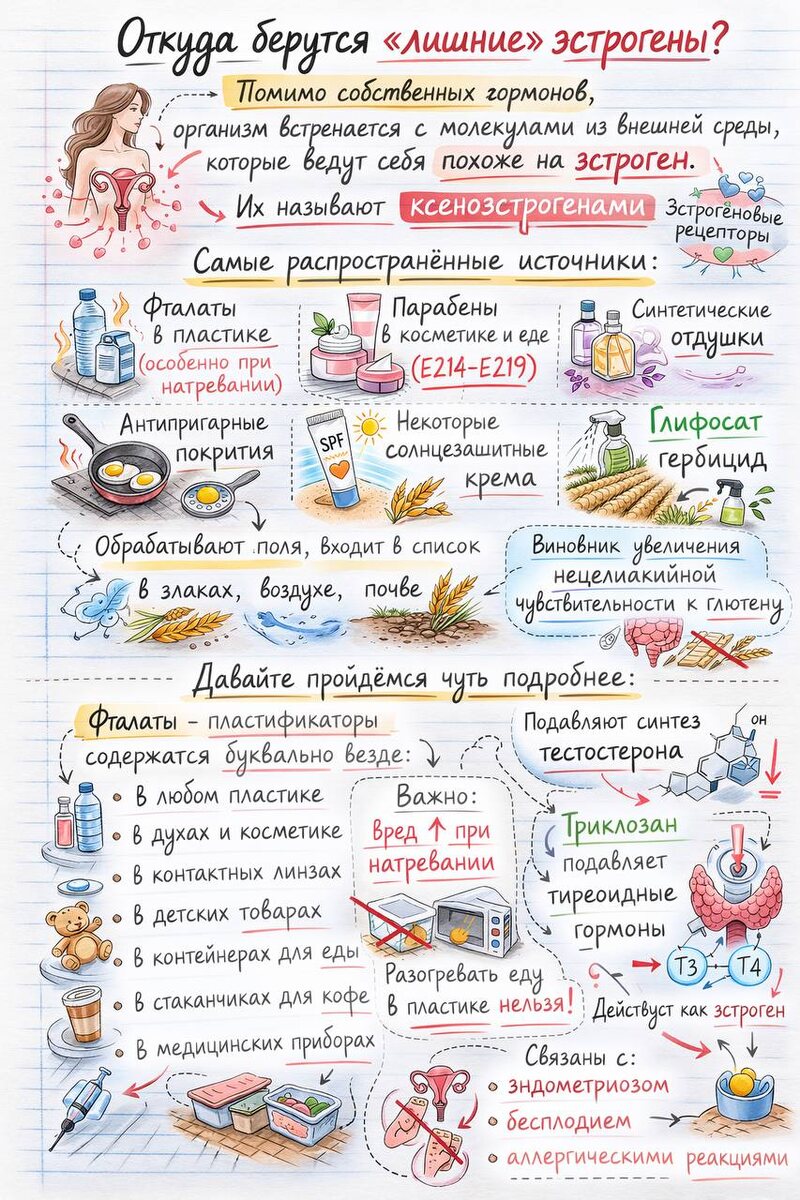 Откуда берутся «лишние» эстрогены?
Помимо собственных гормонов,
организм встренается с молекулами из внешней среды,
которые ведут себя похоже на зстроген.
Их называют ксенозстрогенами
Эстрогёновые
рецепторы
Самые распространённые источники:
Фталаты
в пластике
(особенно при
натревании)
Парабены
в косметике и еде
(E214–E219)
Синтетические
отдушки
Антипригарные
покрития
SPF
Некоторые
солнцезашитные
крема
Глифосат
гербицид
Обрабатывают поля, входит в список
в злаках, воздухе, почве
Виновник увеличения
нецелиакийной
чувствительности к глютену
Давайте пройдёмся чуть подробнее:
Фталаты – пластификаторы
содержатся буквально везде:
• В любом пластике
• В духах и косметике
• В контактных линзах
• В детских товарах
• В контейнерах для еды
• В стаканчиках для кофе
• В медицинских приборах
Важно:
Вред ↑ при
натревании
Разогревать еду
в пластике нельзя!
Подавляют синтез
тестостерона
OH
Триклозан
подавляет
тиреоидные
гормоны
T3
T4
Действуст как зстроген
Связаны с:
• зндометриозом
• бесплодием
• аллергическими реакциями